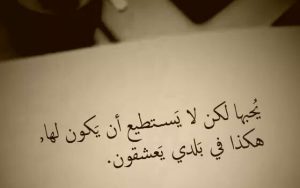 يُحبها لكن لا يَستطيع أن يَكون لها,
هكذا في بَلدي يَعشقون.